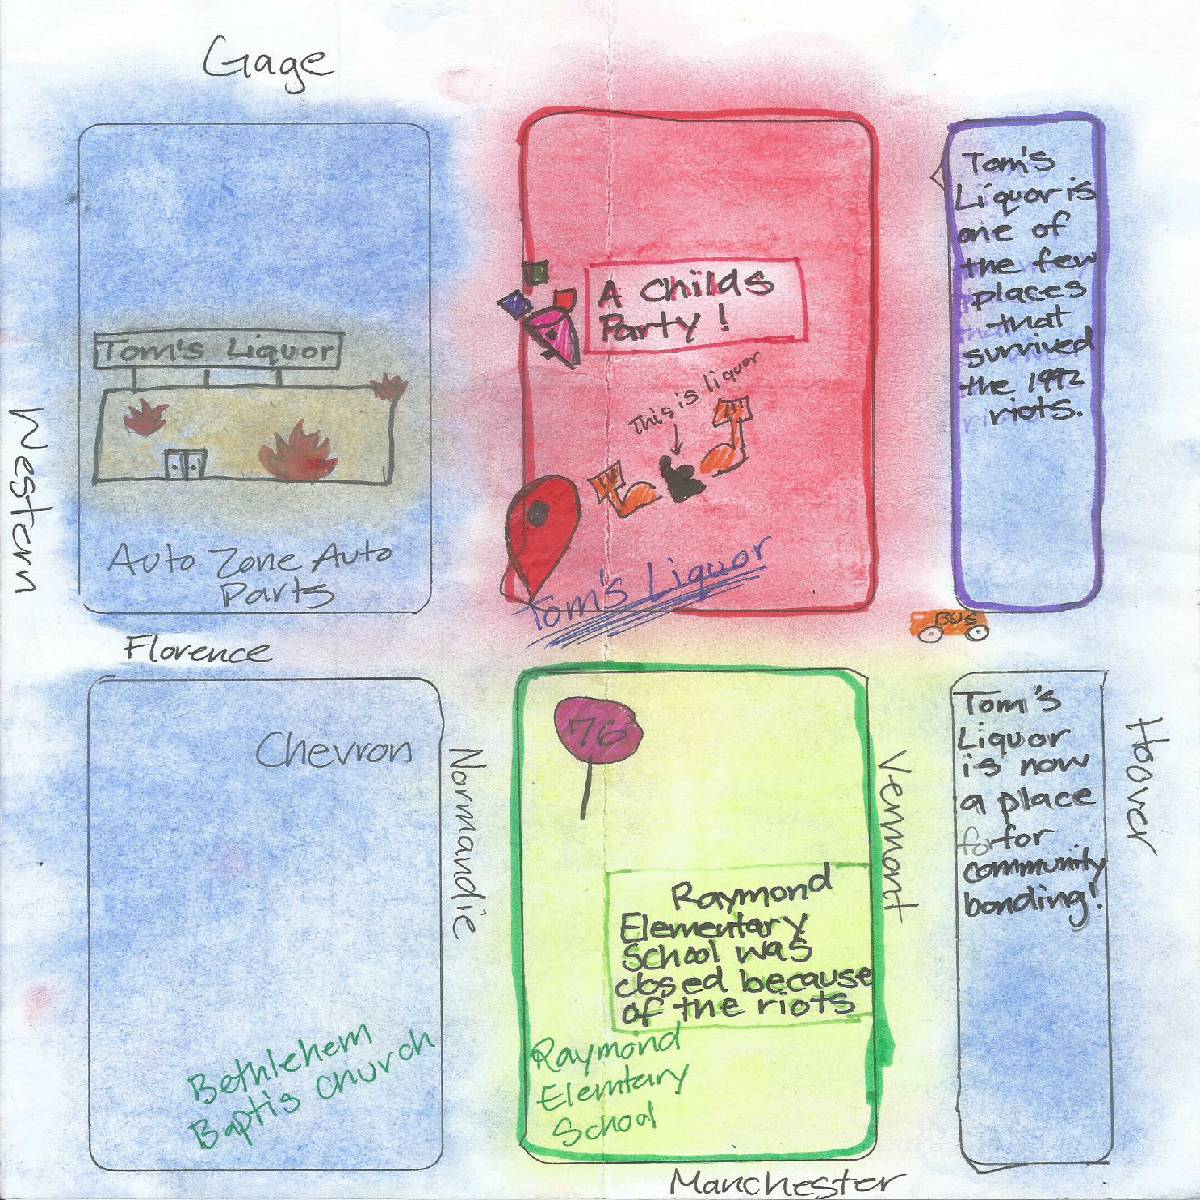 Gage
Tom's Liquor
Auto Zone Auto
Parts
Western
A Childs
Party!
This is liquor
Tom's Liquor
Tom's
Liquor is
one of
the few
places
that
survived
the 1992
riots.
BUS
Florence
Chevron
Bethlehem
Baptis Church
Normandie
76
Raymond
Elementary
School was
closed because
of the riots
Raymond
Elemtary
School
Vermont
Tom's
Liquor
is now
a place
for for
community
bonding!
Hoover
Manchester